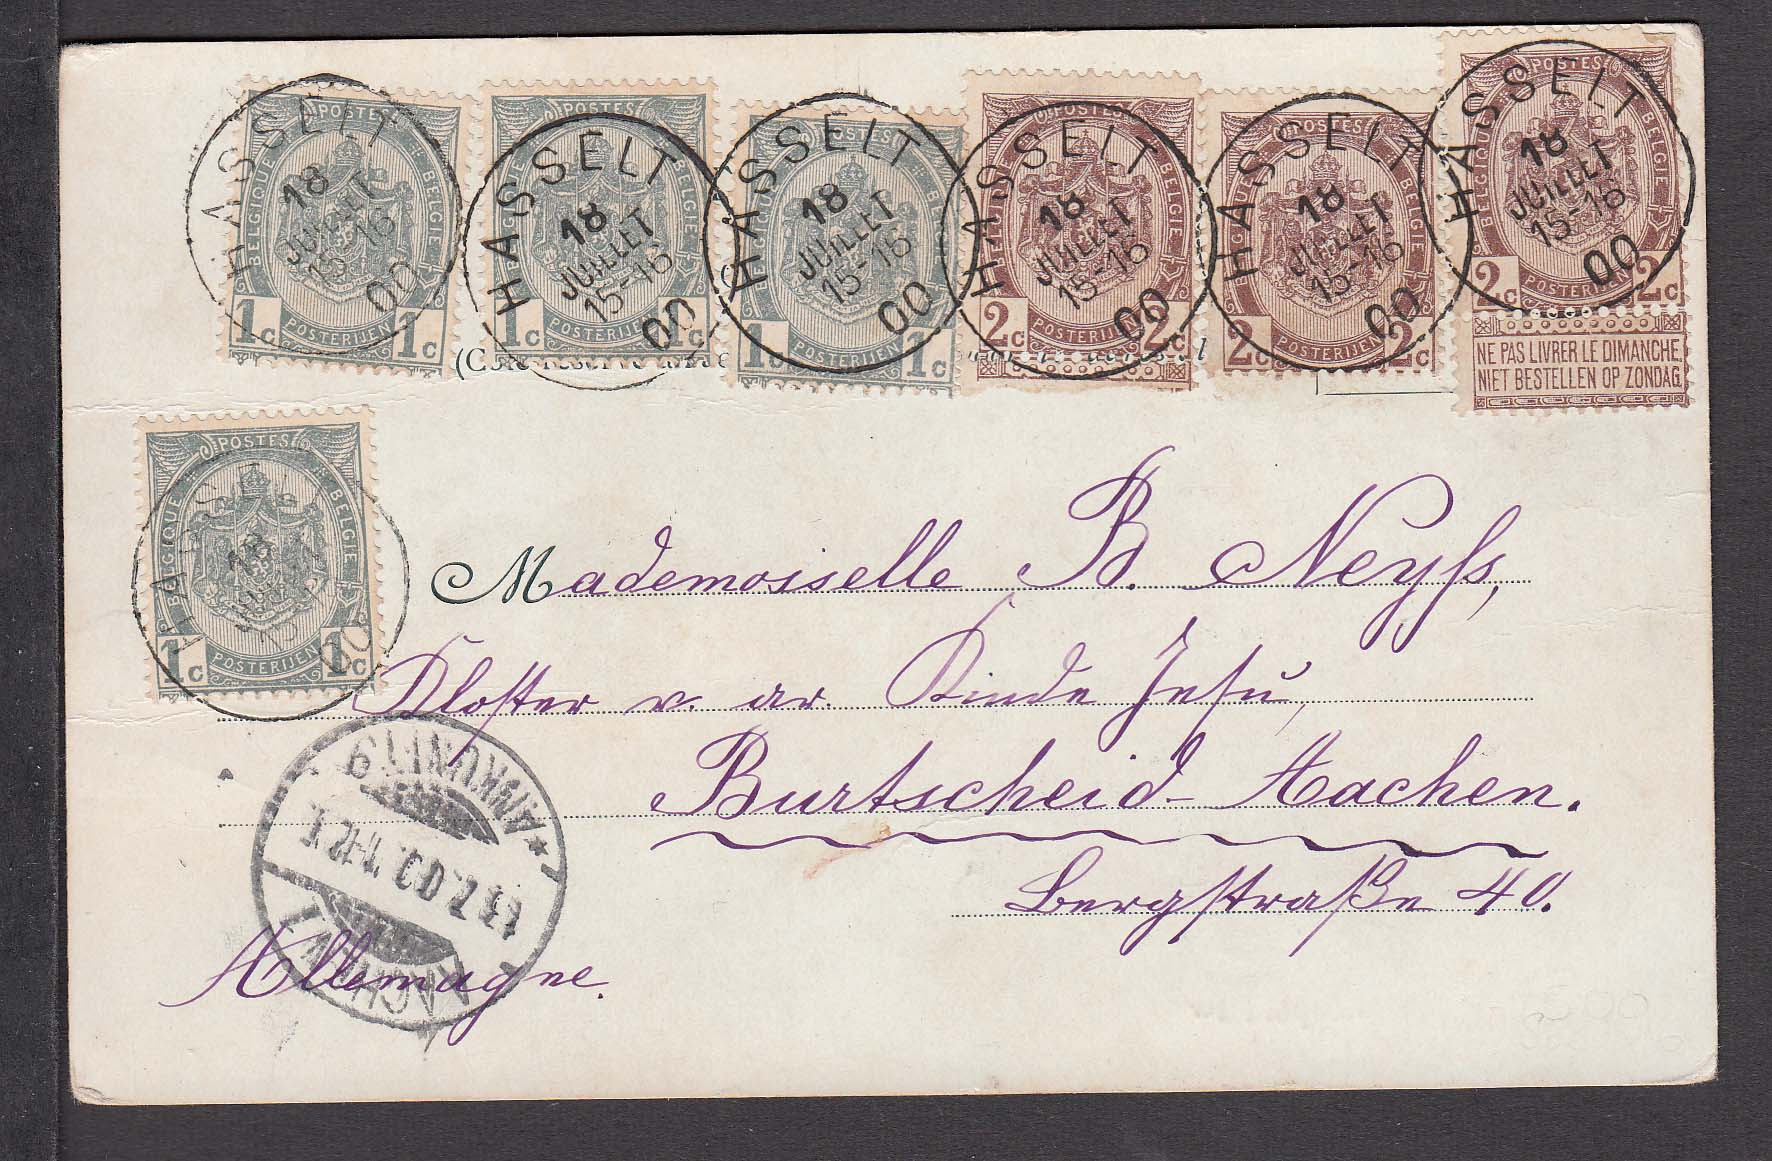 POSTES
BELGIQUE BELGIE
1c 1c
POSTERIJEN
HASSELT
18
JUILLET
15-16
00
POSTES
BELGIQUE BELGIE
1c 1c
POSTERIJEN
HASSELT
18
JUILLET
15-16
00
POSTES
BELGIQUE BELGIE
1c 1c
POSTERIJEN
HASSELT
18
JUILLET
15-16
00
POSTES
BELGIQUE BELGIE
2c 2c
POSTERIJEN
HASSELT
18
JUILLET
15-16
00
POSTES
BELGIQUE BELGIE
2c 2c
POSTERIJEN
HASSELT
18
JUILLET
15-16
00
POSTES
BELGIQUE BELGIE
2c 2c
POSTERIJEN
HASSELT
18
JUILLET
15-16
00
NE PAS LIVRER LE DIMANCHE
NIET BESTELLEN OP ZONDAG
POSTES
BELGIQUE BELGIE
1c 1c
POSTERIJEN
HASSELT
18
00
Mademoiselle B. Neyſs,
Kloster v. ar. Kinde Jesu,
Burtscheid-Aachen.
Bergstraße 40.
Allemagne.
ANKUNFT
AACHEN